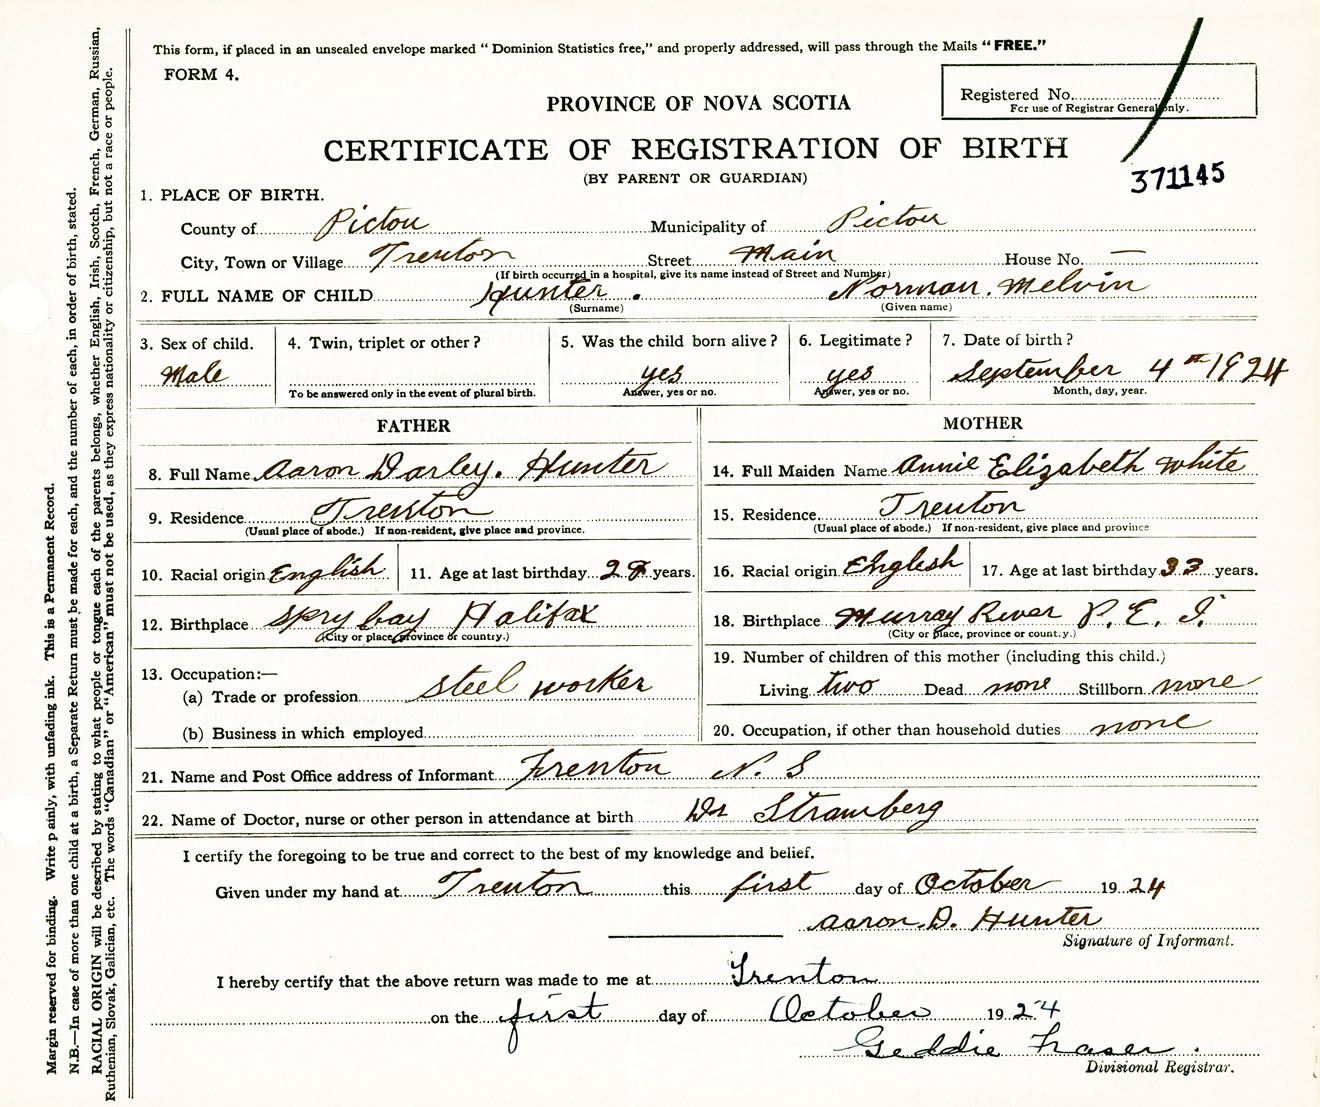 This form, if placed in an unsealed envelope marked "Dominion Statistics free," and properly addressed, will pass through the Mails "FREE."
FORM 4.
Registered No.
For use of Registrar General only.
PROVINCE OF NOVA SCOTIA
CERTIFICATE OF REGISTRATION OF BIRTH
(BY PARENT OR GUARDIAN)
371145
1. PLACE OF BIRTH.
County of Pictou Municipality of Pictou
City, Town or Village Trenton Street Main House No. —
(If birth occurred in a hospital, give its name instead of Street and Number)
2. FULL NAME OF CHILD Hunter. Norman. Melvin
(Surname) (Given name)
3. Sex of child. 4. Twin, triplet or other? 5. Was the child born alive? 6. Legitimate? 7. Date of birth?
Male yes yes September 4th 1924
To be answered only in the event of plural birth. Answer, yes or no. Answer, yes or no. Month, day, year.
FATHER
8. Full Name Aaron Darley. Hunter
9. Residence Trenton
(Usual place of abode.) If non-resident, give place and province.
10. Racial origin English 11. Age at last birthday years.
12. Birthplace Spry bay Halifax
(City or place, province or country.)
13. Occupation:—
(a) Trade or profession steel worker
(b) Business in which employed
MOTHER
14. Full Maiden Name Annie Elizabeth White
15. Residence Trenton
(Usual place of abode.) If non-resident, give place and province
16. Racial origin English 17. Age at last birthday 33 years.
18. Birthplace Murray River P. E. I.
(City or place, province or count.y.)
19. Number of children of this mother (including this child.)
Living two Dead none Stillborn none
20. Occupation, if other than household duties none
21. Name and Post Office address of Informant Trenton N. S
22. Name of Doctor, nurse or other person in attendance at birth Dr Stramberg
I certify the foregoing to be true and correct to the best of my knowledge and belief.
Given under my hand at Trenton this first day of October 1924
Aaron. D. Hunter
Signature of Informant.
I hereby certify that the above return was made to me at Trenton
on the first day of October 1924
Geddie Fraser.
Divisional Registrar.
Margin reserved for binding. Write p ainly, with unfading ink. This is a Permanent Record.
N.B.—In case of more than one child at a birth, a Separate Return must be made for each, and the number of each, in order of birth, stated.
RACIAL ORIGIN will be described by stating to what people or tongue each of the parents belongs, whether English, Irish, Scotch, French, German, Russian,
Ruthenian, Slovak, Galician, etc. The words "Canadian" or "American" must not be used, as they express nationality or citizenship, but not a race or people.